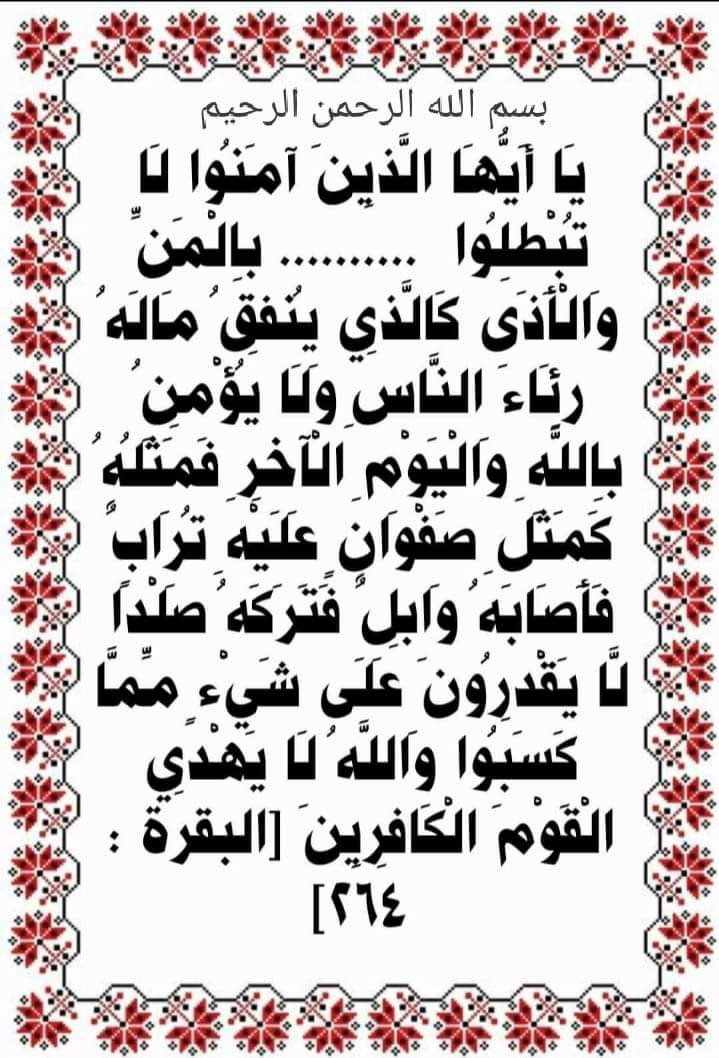 بسم الله الرحمن الرحيم
يَا أَيُّهَا الَّذِينَ آمَنُوا لَا
تُبْطِلُوا .......... بِالْمَنِّ
وَالْأَذَىٰ كَالَّذِي يُنفِقُ مَالَهُ
رِئَاءَ النَّاسِ وَلَا يُؤْمِنُ
بِاللَّهِ وَالْيَوْمِ الْآخِرِ فَمَثَلُهُ
كَمَثَلِ صَفْوَانٍ عَلَيْهِ تُرَابٌ
فَأَصَابَهُ وَابِلٌ فَتَرَكَهُ صَلْدًا
لَّا يَقْدِرُونَ عَلَى شَيْءٍ مِّمَّا
كَسَبُوا وَاللَّهُ لَا يَهْدِي
الْقَوْمَ الْكَافِرِينَ [البقرة :
٢٦٤]